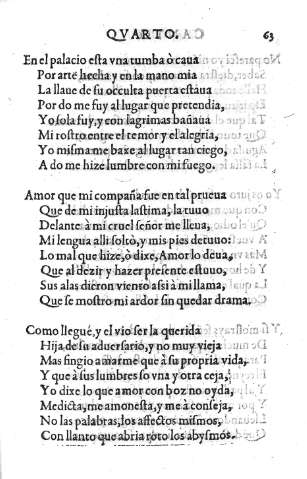 QVARTO. 63
En el palacio esta vna tumba ò caua
Por arte hecha y en la mano mia
La llaue de su oculta puerta estaua
Por do me fuy al lugar que pretendia,
Yo sola fuy, y con lagrimas bañaua
Mi rostro entre el temor y el alegria,
Yo misma me baxe al lugar tan ciego,
A do me hize lumbre con mi fuego.
Amor que mi compaña fue en tal prueua
Que de mi injusta lastima, la tuuo
Delante à mi cruel señor me lleua,
Mi lengua alli soltò, y mis pies detuuo:
Lo mal que hize, ò dixe, Amor lo deua,
Que al dezir y hazer presente estuuo,
Sus alas dieron viento assi à mi llama,
Que se mostro mi ardor sin quedar drama.
Como lleguè, y el vio ser la querida
Hija de su aduersario, y no muy vieja
Mas fingio amarme que à su propria vida,
Y que à sus lumbres so vna y otra ceja,
Yo dixe lo que amor con boz no oyda,
Me dicta, me amonesta, y me à conseja,
No las palabras, los affectos mismos,
Con llanto que abria roto los abysmos.